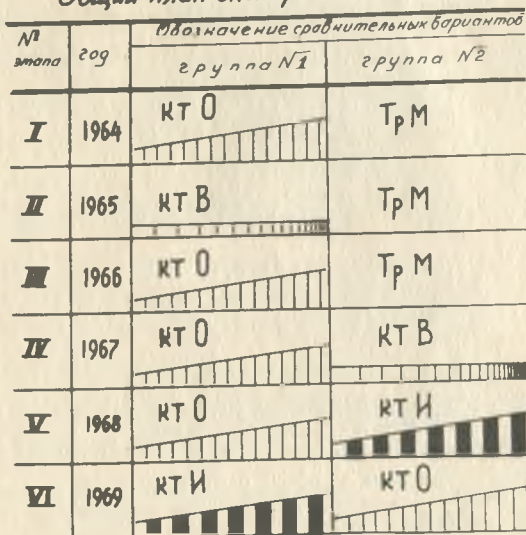 Общий план
№ этапа год Обозначение сравнительных вариантов
группа №1 группа №2
I 1964 КТ О Тр М
II 1965 КТ В Тр М
III 1966 КТ О Тр М
IV 1967 КТ О КТ В
V 1968 КТ О КТ И
VI 1969 КТ И КТ О